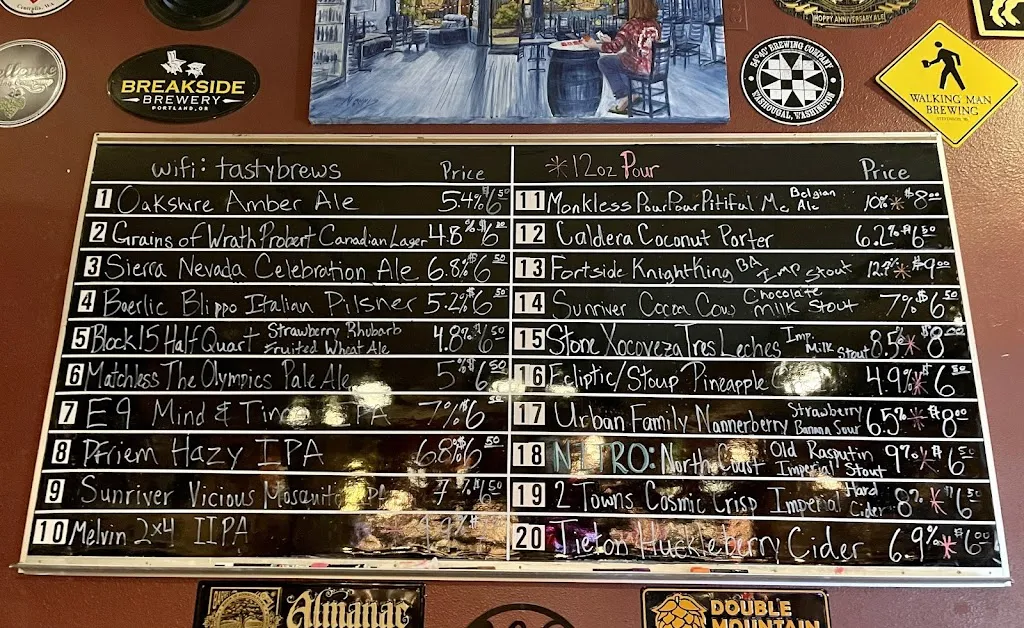 Centralia, WA
HOPPY ANNIVERSARY ALE
BREAKSIDE
BREWERY
PORTLAND, OR
54°40' BREWING COMPANY
WASHOUGAL, WASHINGTON
WALKING MAN
BREWING
wifi: tastybrews Price
1 Oakshire Amber Ale 5.4% $6.50
2 Grains of Wrath Probert Canadian Lager 4.8% $6.50
3 Sierra Nevada Celebration Ale 6.8% $6.50
4 Baerlic Blippo Italian Pilsner 5.2% $6.50
5 Block 15 Half Quart Strawberry Rhubarb Fruited Wheat Ale 4.8% $6.50
6 Matchless The Olympics Pale Ale 5% $6.50
7 E9 Mind & Time IPA 7% $6
8 Pfriem Hazy IPA 6.8% $6.50
9 Sunriver Vicious Mosquito IPA 7% $6.50
10 Melvin 2x4 IIPA
*12oz Pour Price
11 Monkless PourPourPitiful Me Belgian Ale 10%* $8.00
12 Caldera Coconut Porter 6.2% $6.50
13 Fortside KnightKing BA Imp Stout * $9.00
14 Sunriver Cocoa Cow Chocolate Milk Stout 7% $6.50
15 Stone Xocoveza Tres Leches Imp. Milk Stout 8.5%* $8.00
16 Ecliptic/Stoup Pineapple 4.9%* $6.50
17 Urban Family Nannerberry Strawberry Banana Sour 6.5%* $8.00
18 NITRO: North Coast Old Rasputin Imperial Stout 9%* $6.50
19 2 Towns Cosmic Crisp Imperial Hard Cider 8%* $6.50
20 Tieton Huckleberry Cider 6.9%* $6.00
Almanac
DOUBLE
MOUNTAIN